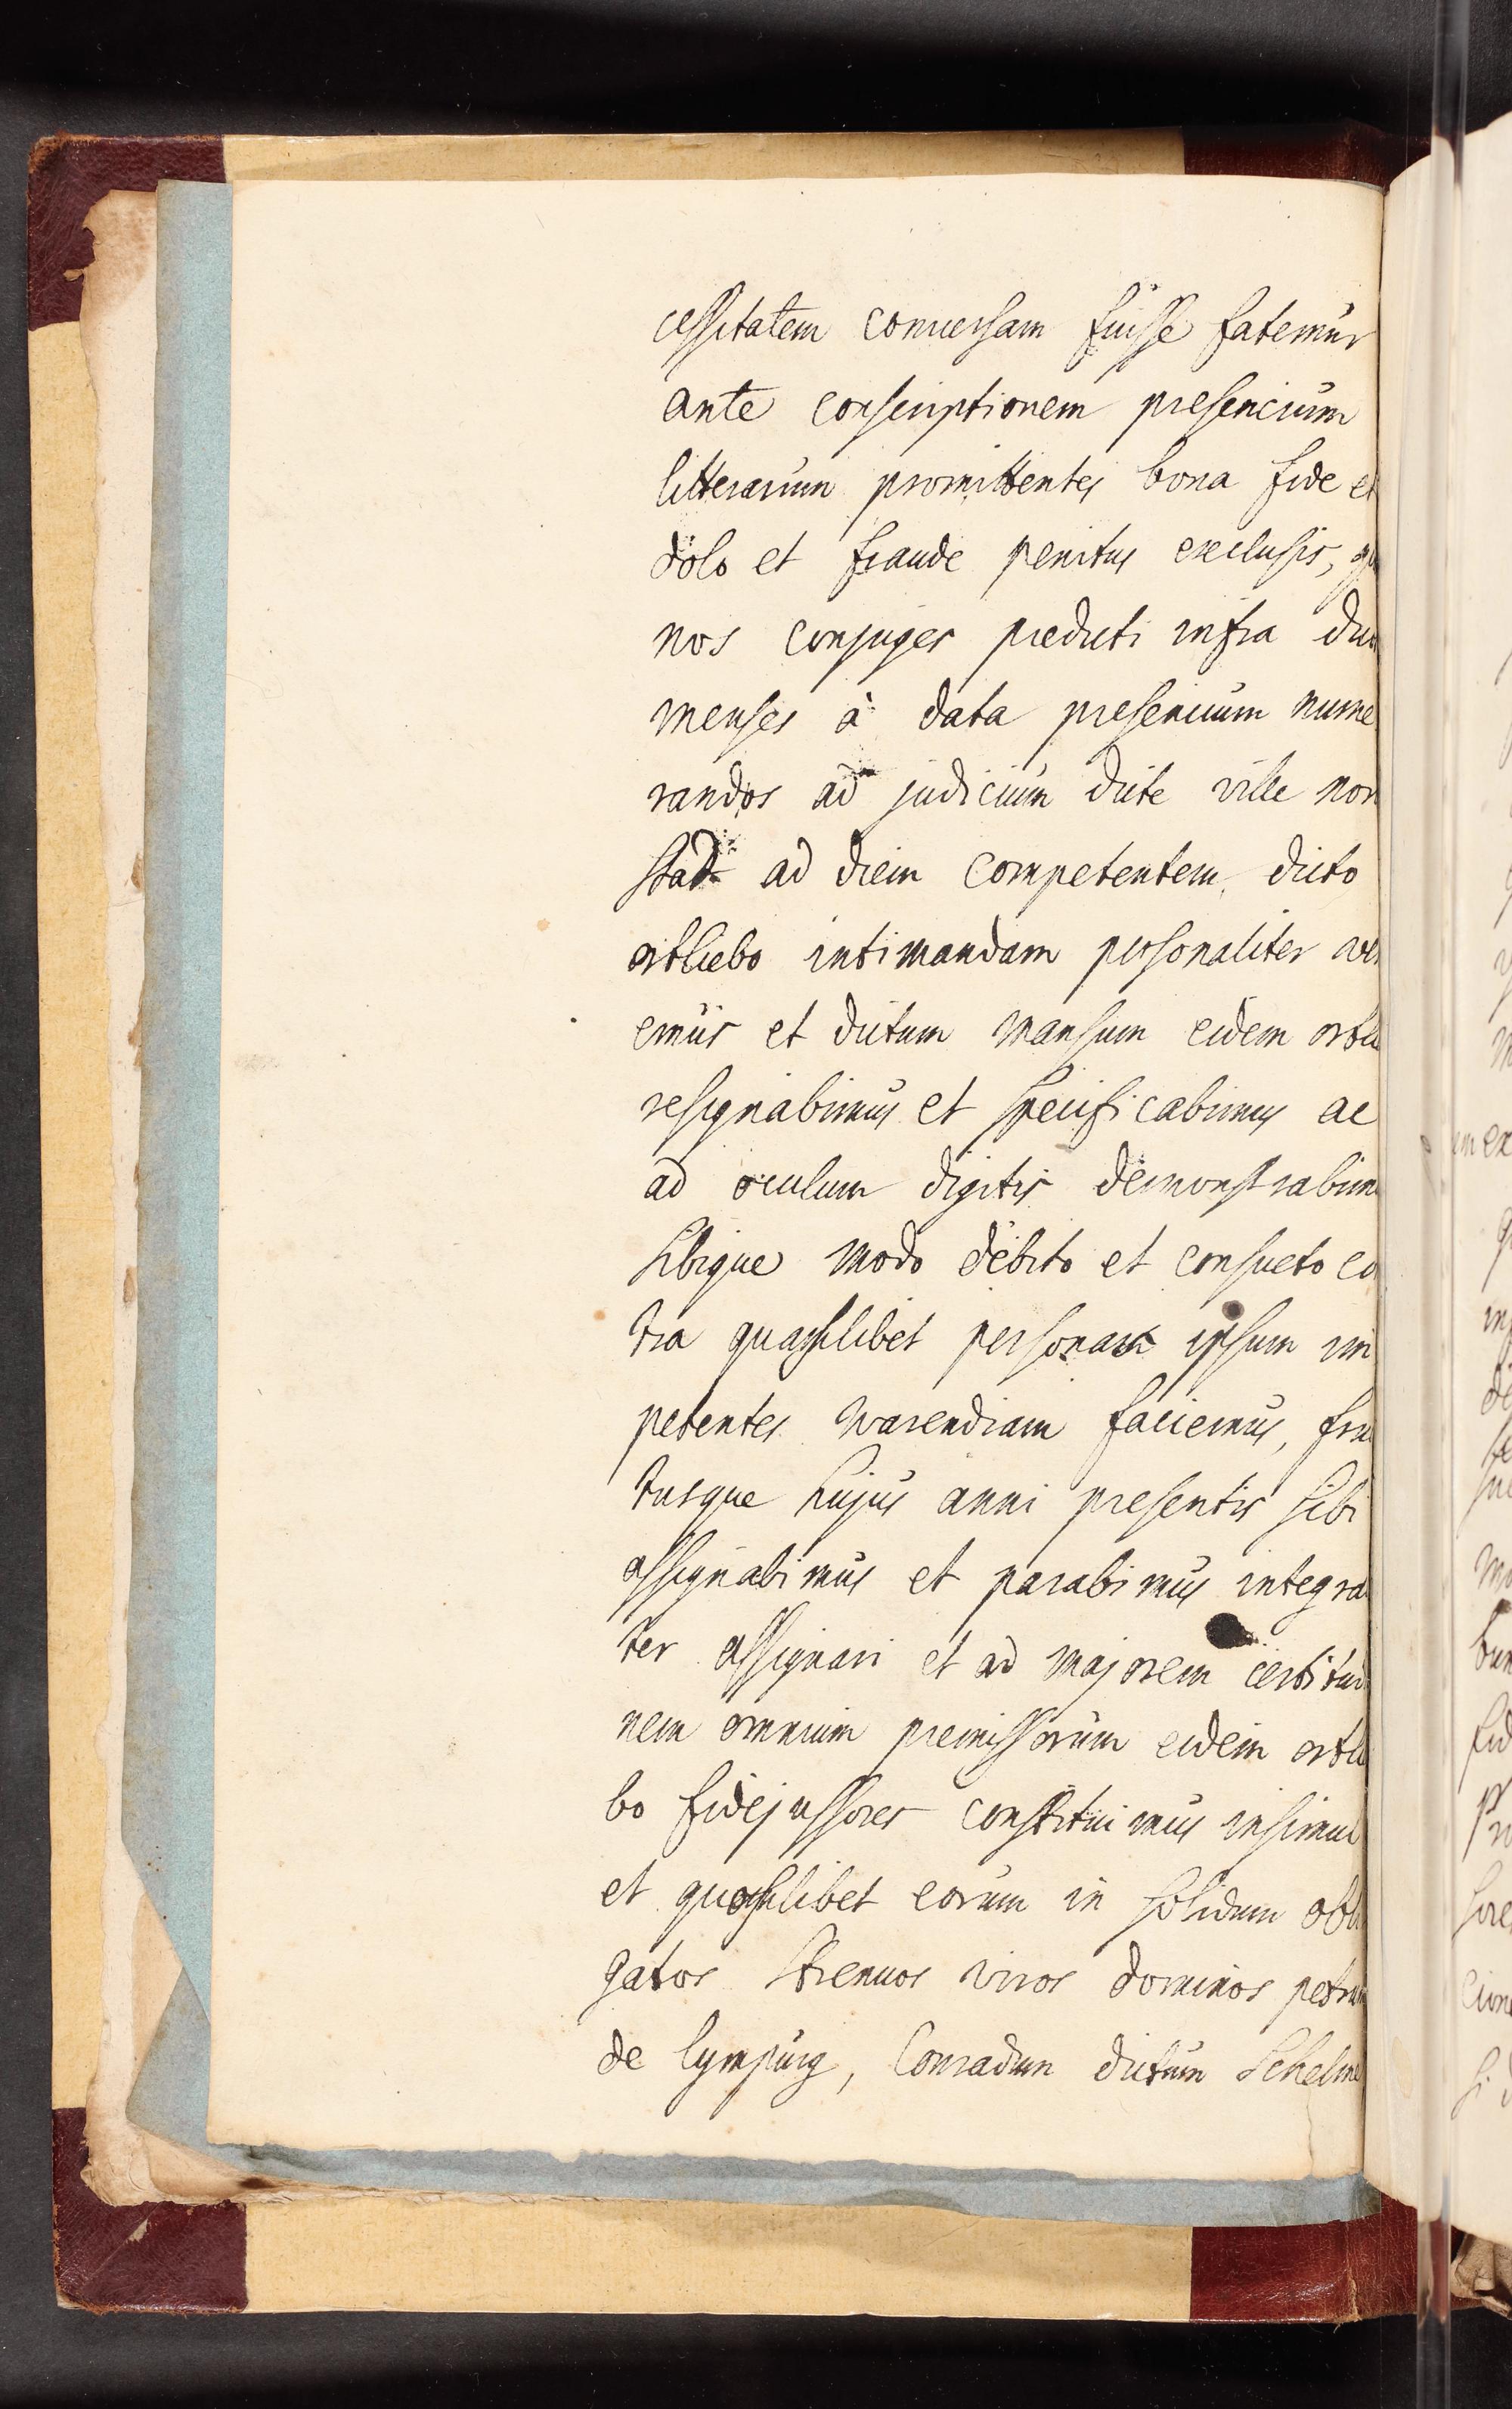 cessitatem conversam fuisse fatemur
ante conscriptionem presencium
litterarum promittentes bona fide et
dolo et fraude penitus exclusis,
nos conjuges predicti infra duo
menses à data presencium nume
randos ad judicium dicte ville nor
stad ad diem competentem dicto
ortliebo intimandam personaliter ven
emus et dictum mansum eidem ortli
resignabimus et specificabimus ac
ad oculum digitis demonstrabimu
sibique modo debito et consueto co
tra quaslibet personas ipsum im
petentes warendiam faciemus, fruc
tusque hujus anni presentis sibi
assignabimus et parabimus integra
ter assignari et ad majorem certitudi
nem omnium premissorum eidem ortli
bo fidejussores constituimus insimul
et quoslibet eorum in solidum obli
gatos strenuos viros dominos petrum
de lympurg, Conradum dictum Schelme
in ex